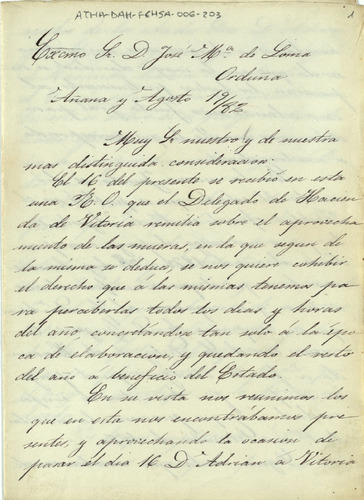 ATHA-DAH-FCHSA-006-203
1
Excmo Sr. D José Mª de Loma
Orduña
Añana y Agosto 19/82
Muy Sr nuestro y de nuestra
mas distinguida consideracion:
El 16 del presente se recibió en esta
una R. O. que el Delegado de Hacien
da de Vitoria remitia sobre el aprovecha
miento de las mueras, en la que segun de
la misma se deduce, se nos quiere cohibir
el derecho que á las mismas tenemos pa
ra percibirlas todos los dias y horas
del año, concretándose tan solo á la épo
ca de elaboracion, y quedando el resto
del año á beneficio del Estado.
En su vista nos reunimos los
que en esta nos encontrábamos pre
sentes, y aprovechando la ocasion de
pasar el dia 16 D. Adrian á Vitoria